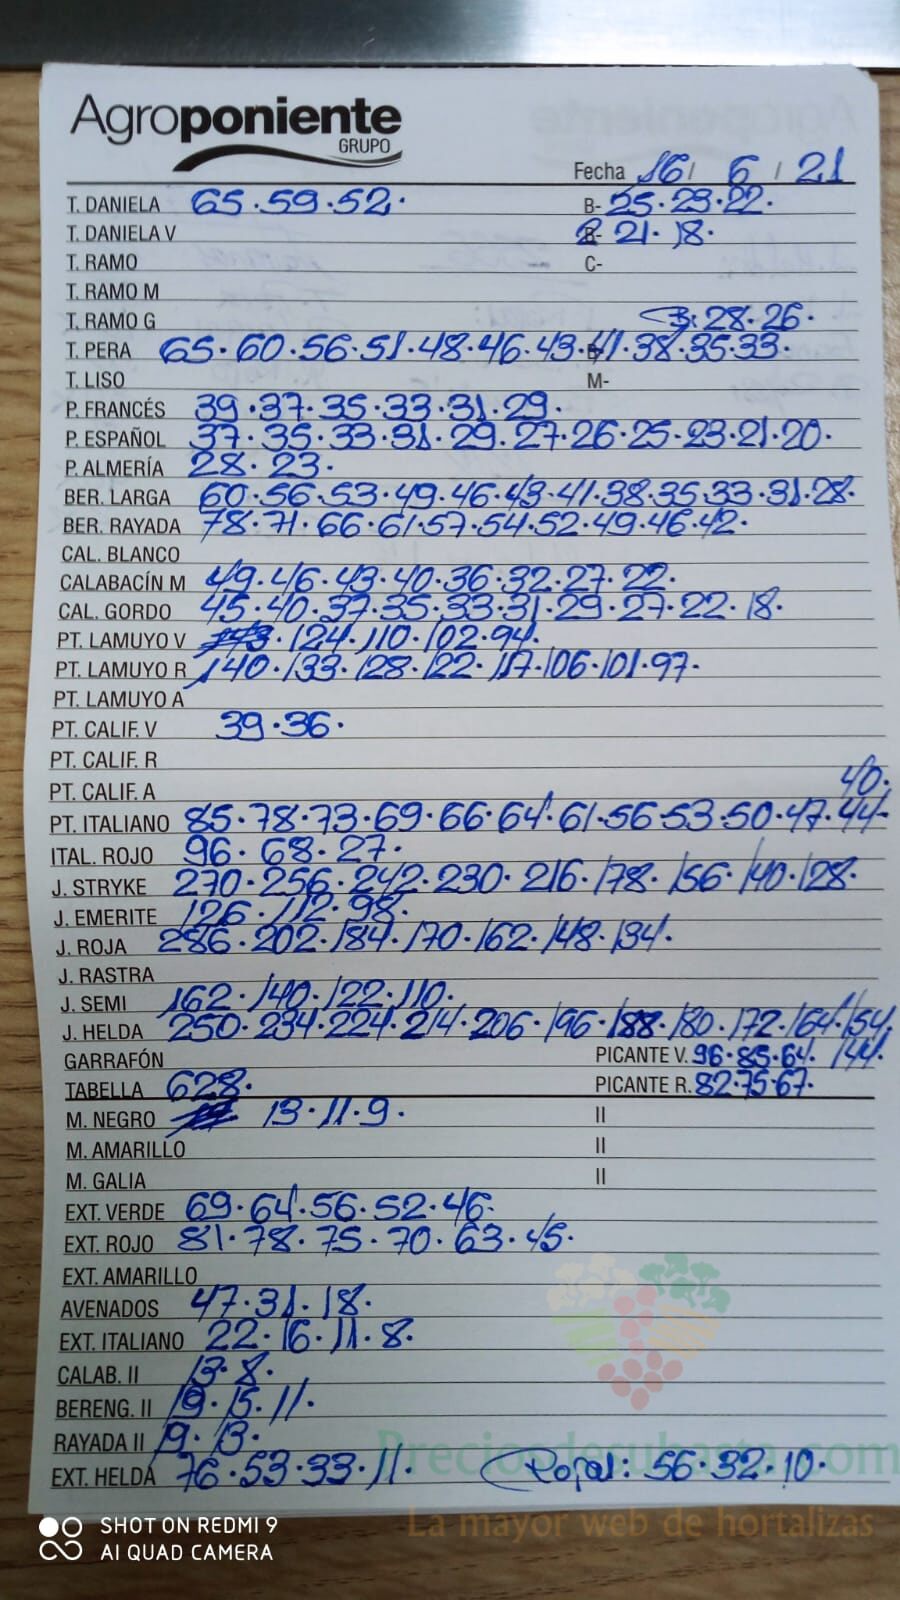 Agroponiente
GRUPO
Fecha 16/ 6 / 21
T. DANIELA 65.59.52. B- 25.23.22.
T. DANIELA V B- 21.18.
T. RAMO C-
T. RAMO M
T. RAMO G B: 28.26.
T. PERA 65.60.56.51.48.46.43.41.38.35.33.
T. LISO M-
P. FRANCÉS 39.37.35.33.31.29.
P. ESPAÑOL 37.35.33.31.29.27.26.25.23.21.20.
P. ALMERÍA 28.23.
BER. LARGA 60.56.53.49.46.43.41.38.35.33.31.28.
BER. RAYADA 78.71.66.61.57.54.52.49.46.42.
CAL. BLANCO
CALABACÍN M 49.46.43.40.36.32.27.22.
CAL. GORDO 45.40.37.35.33.31.29.27.22.18.
PT. LAMUYO V 124.110.102.94.
PT. LAMUYO R 140.133.128.122.117.106.101.97.
PT. LAMUYO A
PT. CALIF. V 39.36.
PT. CALIF. R
PT. CALIF. A 40.
PT. ITALIANO 85.78.73.69.66.64.61.56.53.50.47.44-
ITAL. ROJO 96.68.27.
J. STRYKE 270.256.242.230.216.178.156.140.128.
J. EMERITE 126.112.98.
J. ROJA 286.202.184.170.162.148.134.
J. RASTRA
J. SEMI 162.140.122.110.
J. HELDA 250.234.224.214.206.196.188.180.172.164.154.
GARRAFÓN PICANTE V. 96.85.64. 144.
TABELLA 628. PICANTE R. 82.75.67.
M. NEGRO 13.11.9. II
M. AMARILLO II
M. GALIA II
EXT. VERDE 69.64.56.52.46.
EXT. ROJO 81.78.75.70.63.45.
EXT. AMARILLO
AVENADOS 47.31.18.
EXT. ITALIANO 22.16.11.8.
CALAB. II 13.8.
BERENG. II 19.15.11.
RAYADA II 19.13.
Preciosdesubasta.com
EXT. HELDA 76.53.33.11. Rojas: 56.32.10.
La mayor web de hortalizas
SHOT ON REDMI 9
AI QUAD CAMERA